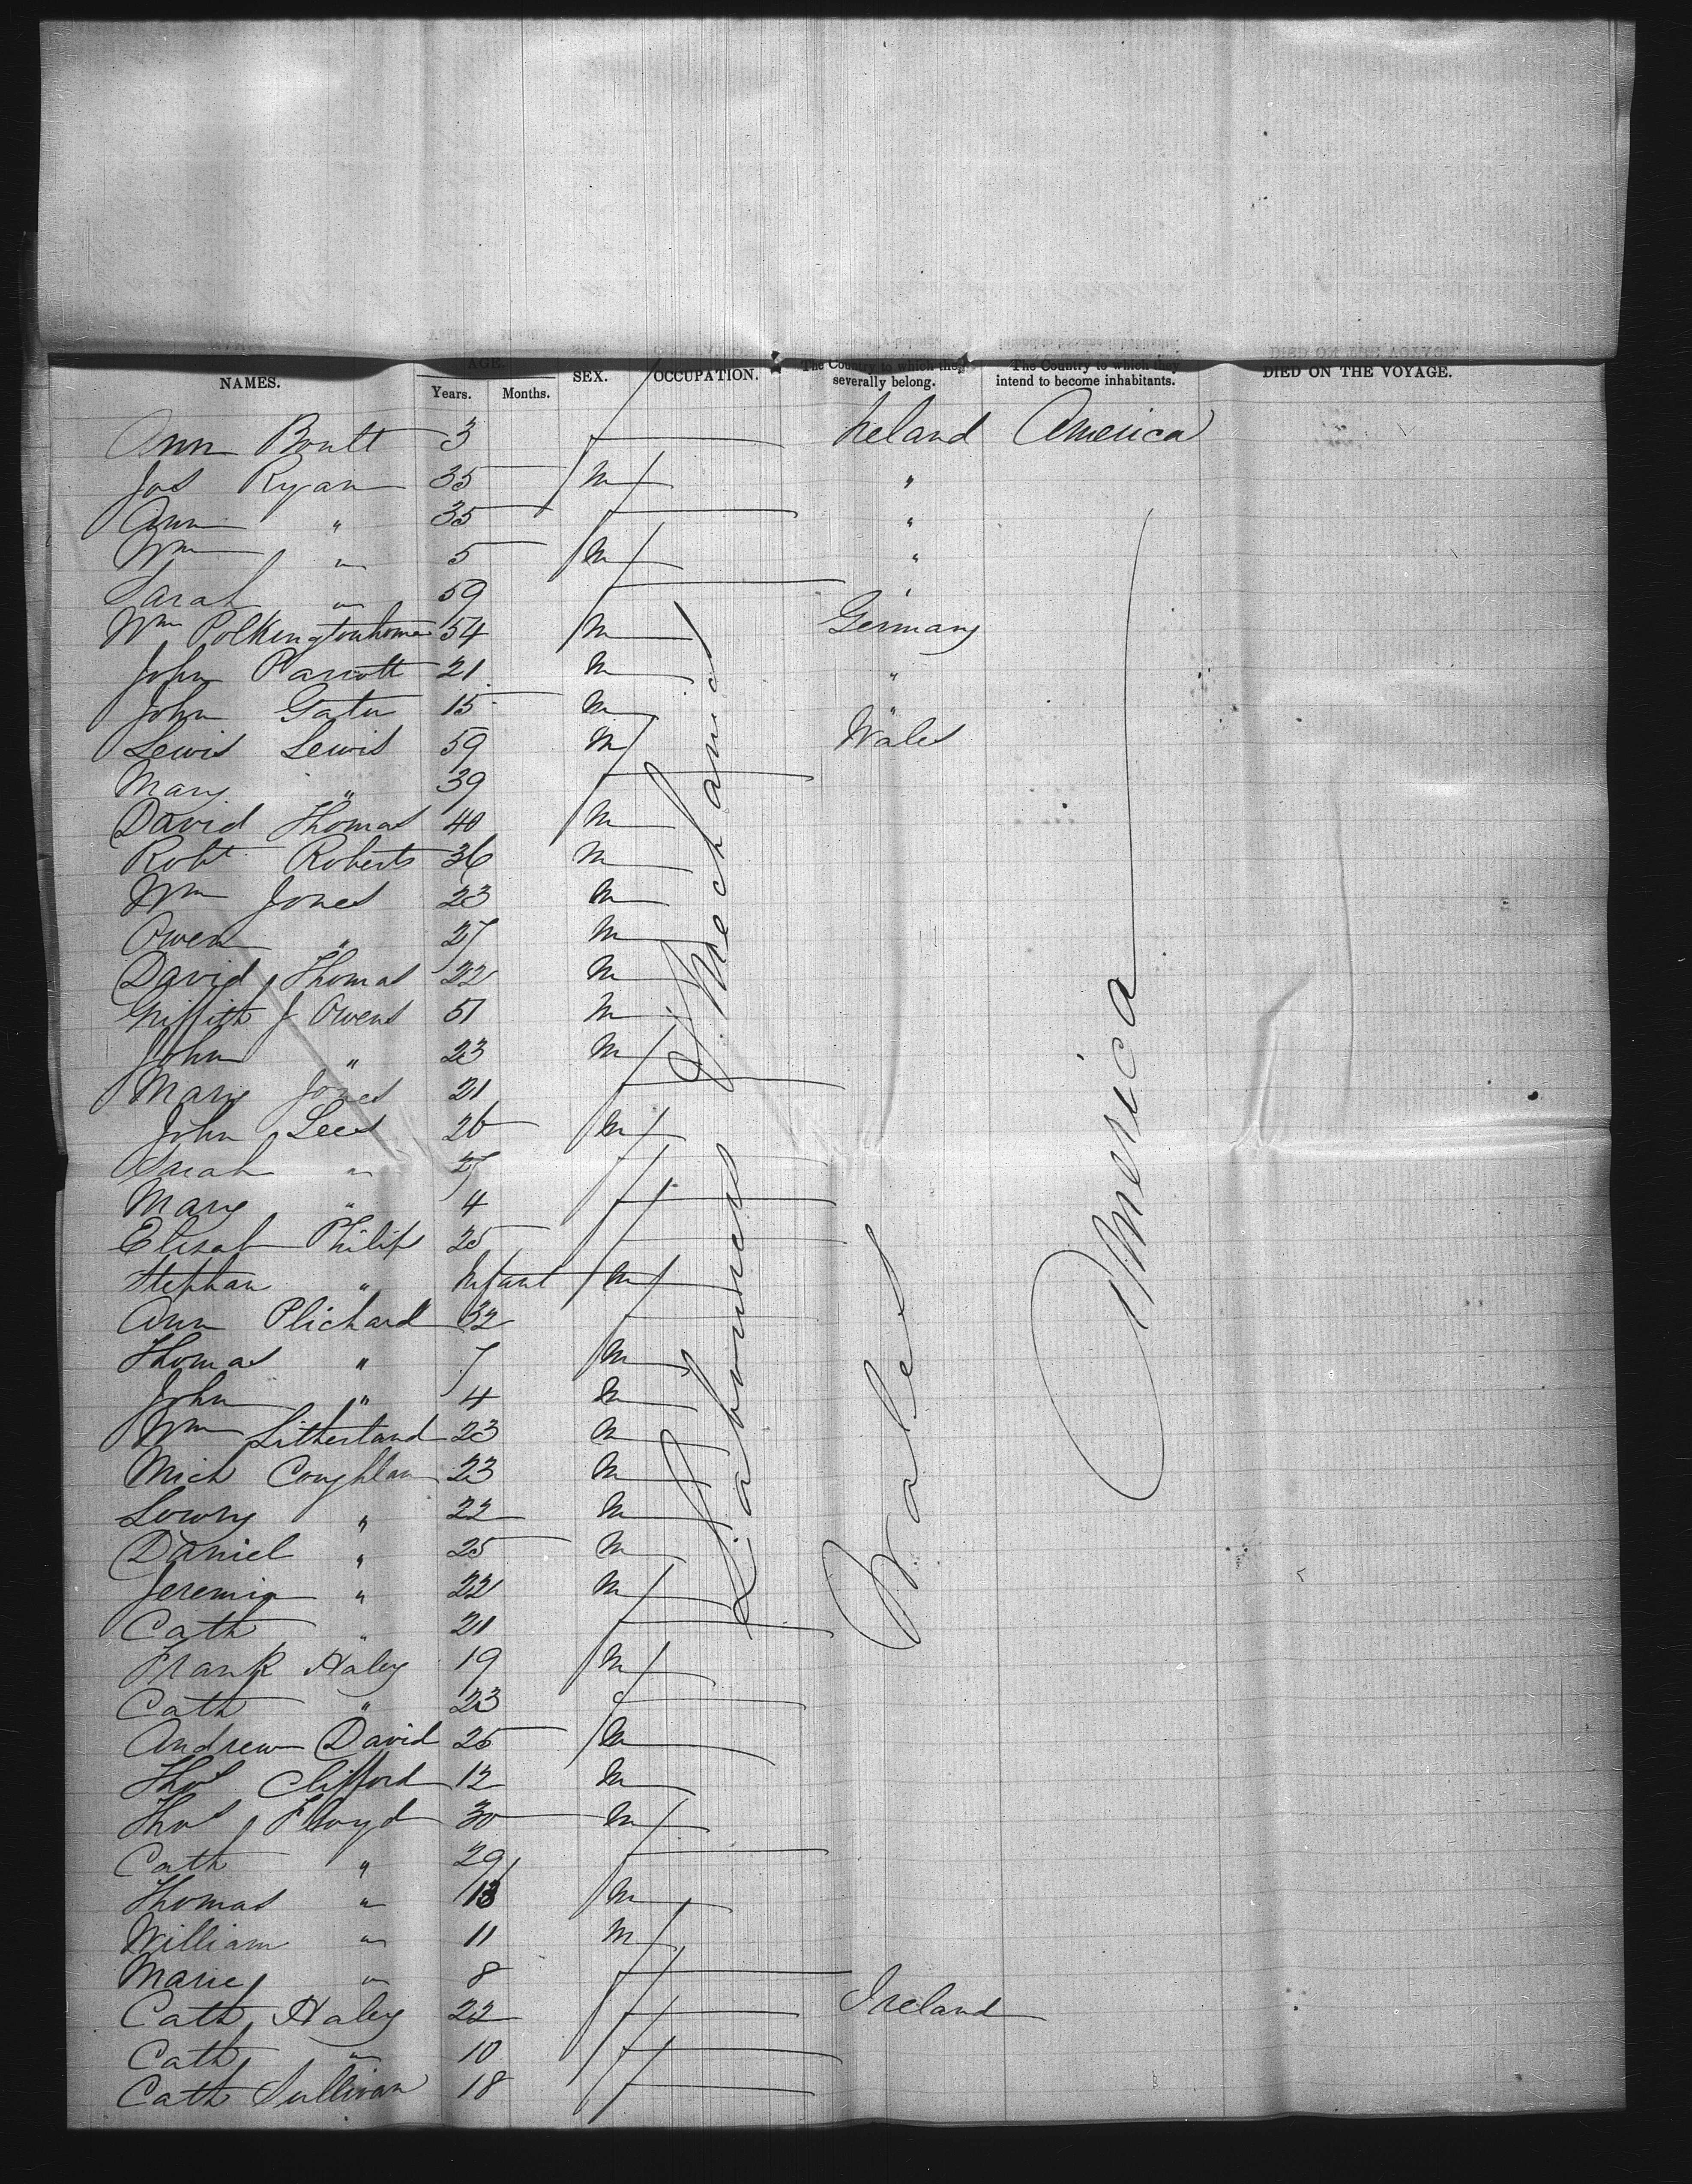 NAMES. AGE. SEX. OCCUPATION. The Country to which they severally belong. The Country to which they intend to become inhabitants. DIED ON THE VOYAGE.
Years. Months.
Ann 3 f Ireland America
Jas Ryan 35 m "
Ann " 35 f "
Wm " 5 m "
Sarah " 59 f "
Wm 54 m Germany
John Parrott 21 m "
John 15 m "
Lewis Lewis 59 m Wales
Mary " 39 f
David Thomas 40 m
Robt Roberts 36 m
Wm Jones 23 m
Owen " 27 m
David Thomas 22 m
Griffith J Owens 51 m
John " 23 m
Mary Jones 21 f
John Lees 26 m
Sarah " 27 f
Mary " 4 f
Elizah Philips 25 f
Stephan " Infant m
Ann Plichard 32 f
Thomas " 7 m
John " 4 m
Wm Litherland 23 m
Mich Coughlan 23 m
Lowry " 22 m
Daniel " 25 m
Jeremia " 22 m
Cath " 21 f
Frank Haley 19 m
Cath " 23 f
Andrew David 25 m
Thos Clifford 12 m
Thos Floyd 30 m
Cath " 29 f
Thomas " 13 m
William " 11 m
Marie " 8 f
Cath Haley 22 f Ireland
Cath " 10 f
Cath Sullivan 18 f
Labourers & Mechanics
Wales
America